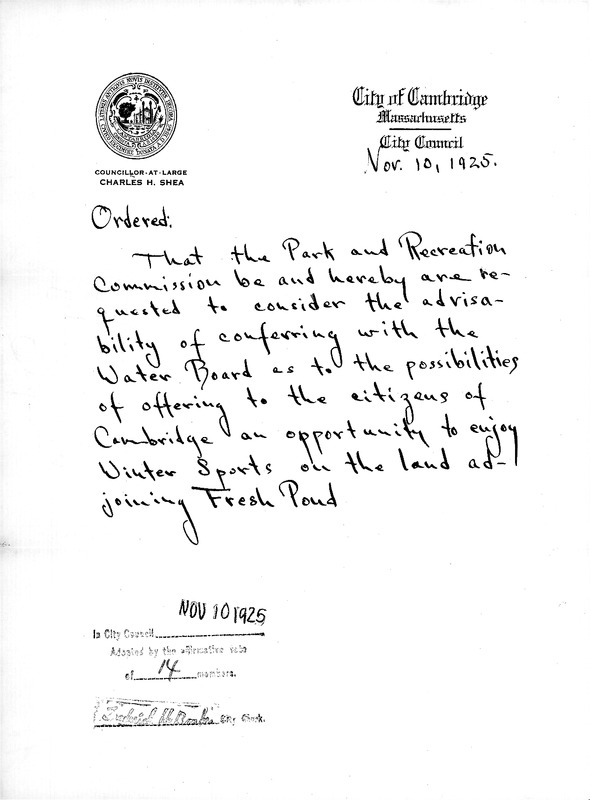 City of Cambridge
Massachusetts
City Council
Nov. 10, 1925.
COUNCILLOR-AT-LARGE
CHARLES H. SHEA
Ordered:
That the Park and Recreation
Commission be and hereby are re-
quested to consider the advisa-
bility of conferring with the
Water Board as to the possibilities
of offering to the citizens of
Cambridge an opportunity to enjoy
Winter Sports on the land ad-
joining Fresh Pond
NOV 10 1925
In City Council
Adopted by the affirmative vote
of 14 members.
City Clerk.